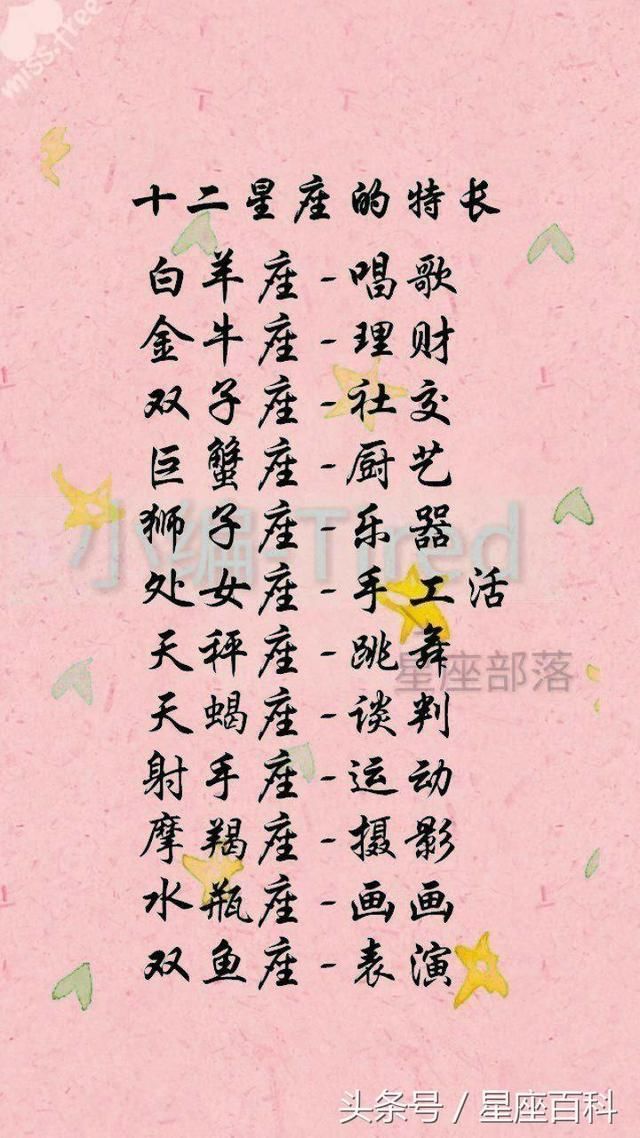 miss.tree
十二星座的特长
白羊座-唱歌
金牛座-理财
双子座-社交
巨蟹座-厨艺
狮子座-乐器
小编-Tired
处女座-手工活
天秤座-跳舞
星座部落
天蝎座-谈判
射手座-运动
摩羯座-摄影
水瓶座-画画
双鱼座-表演
头条号/星座百科